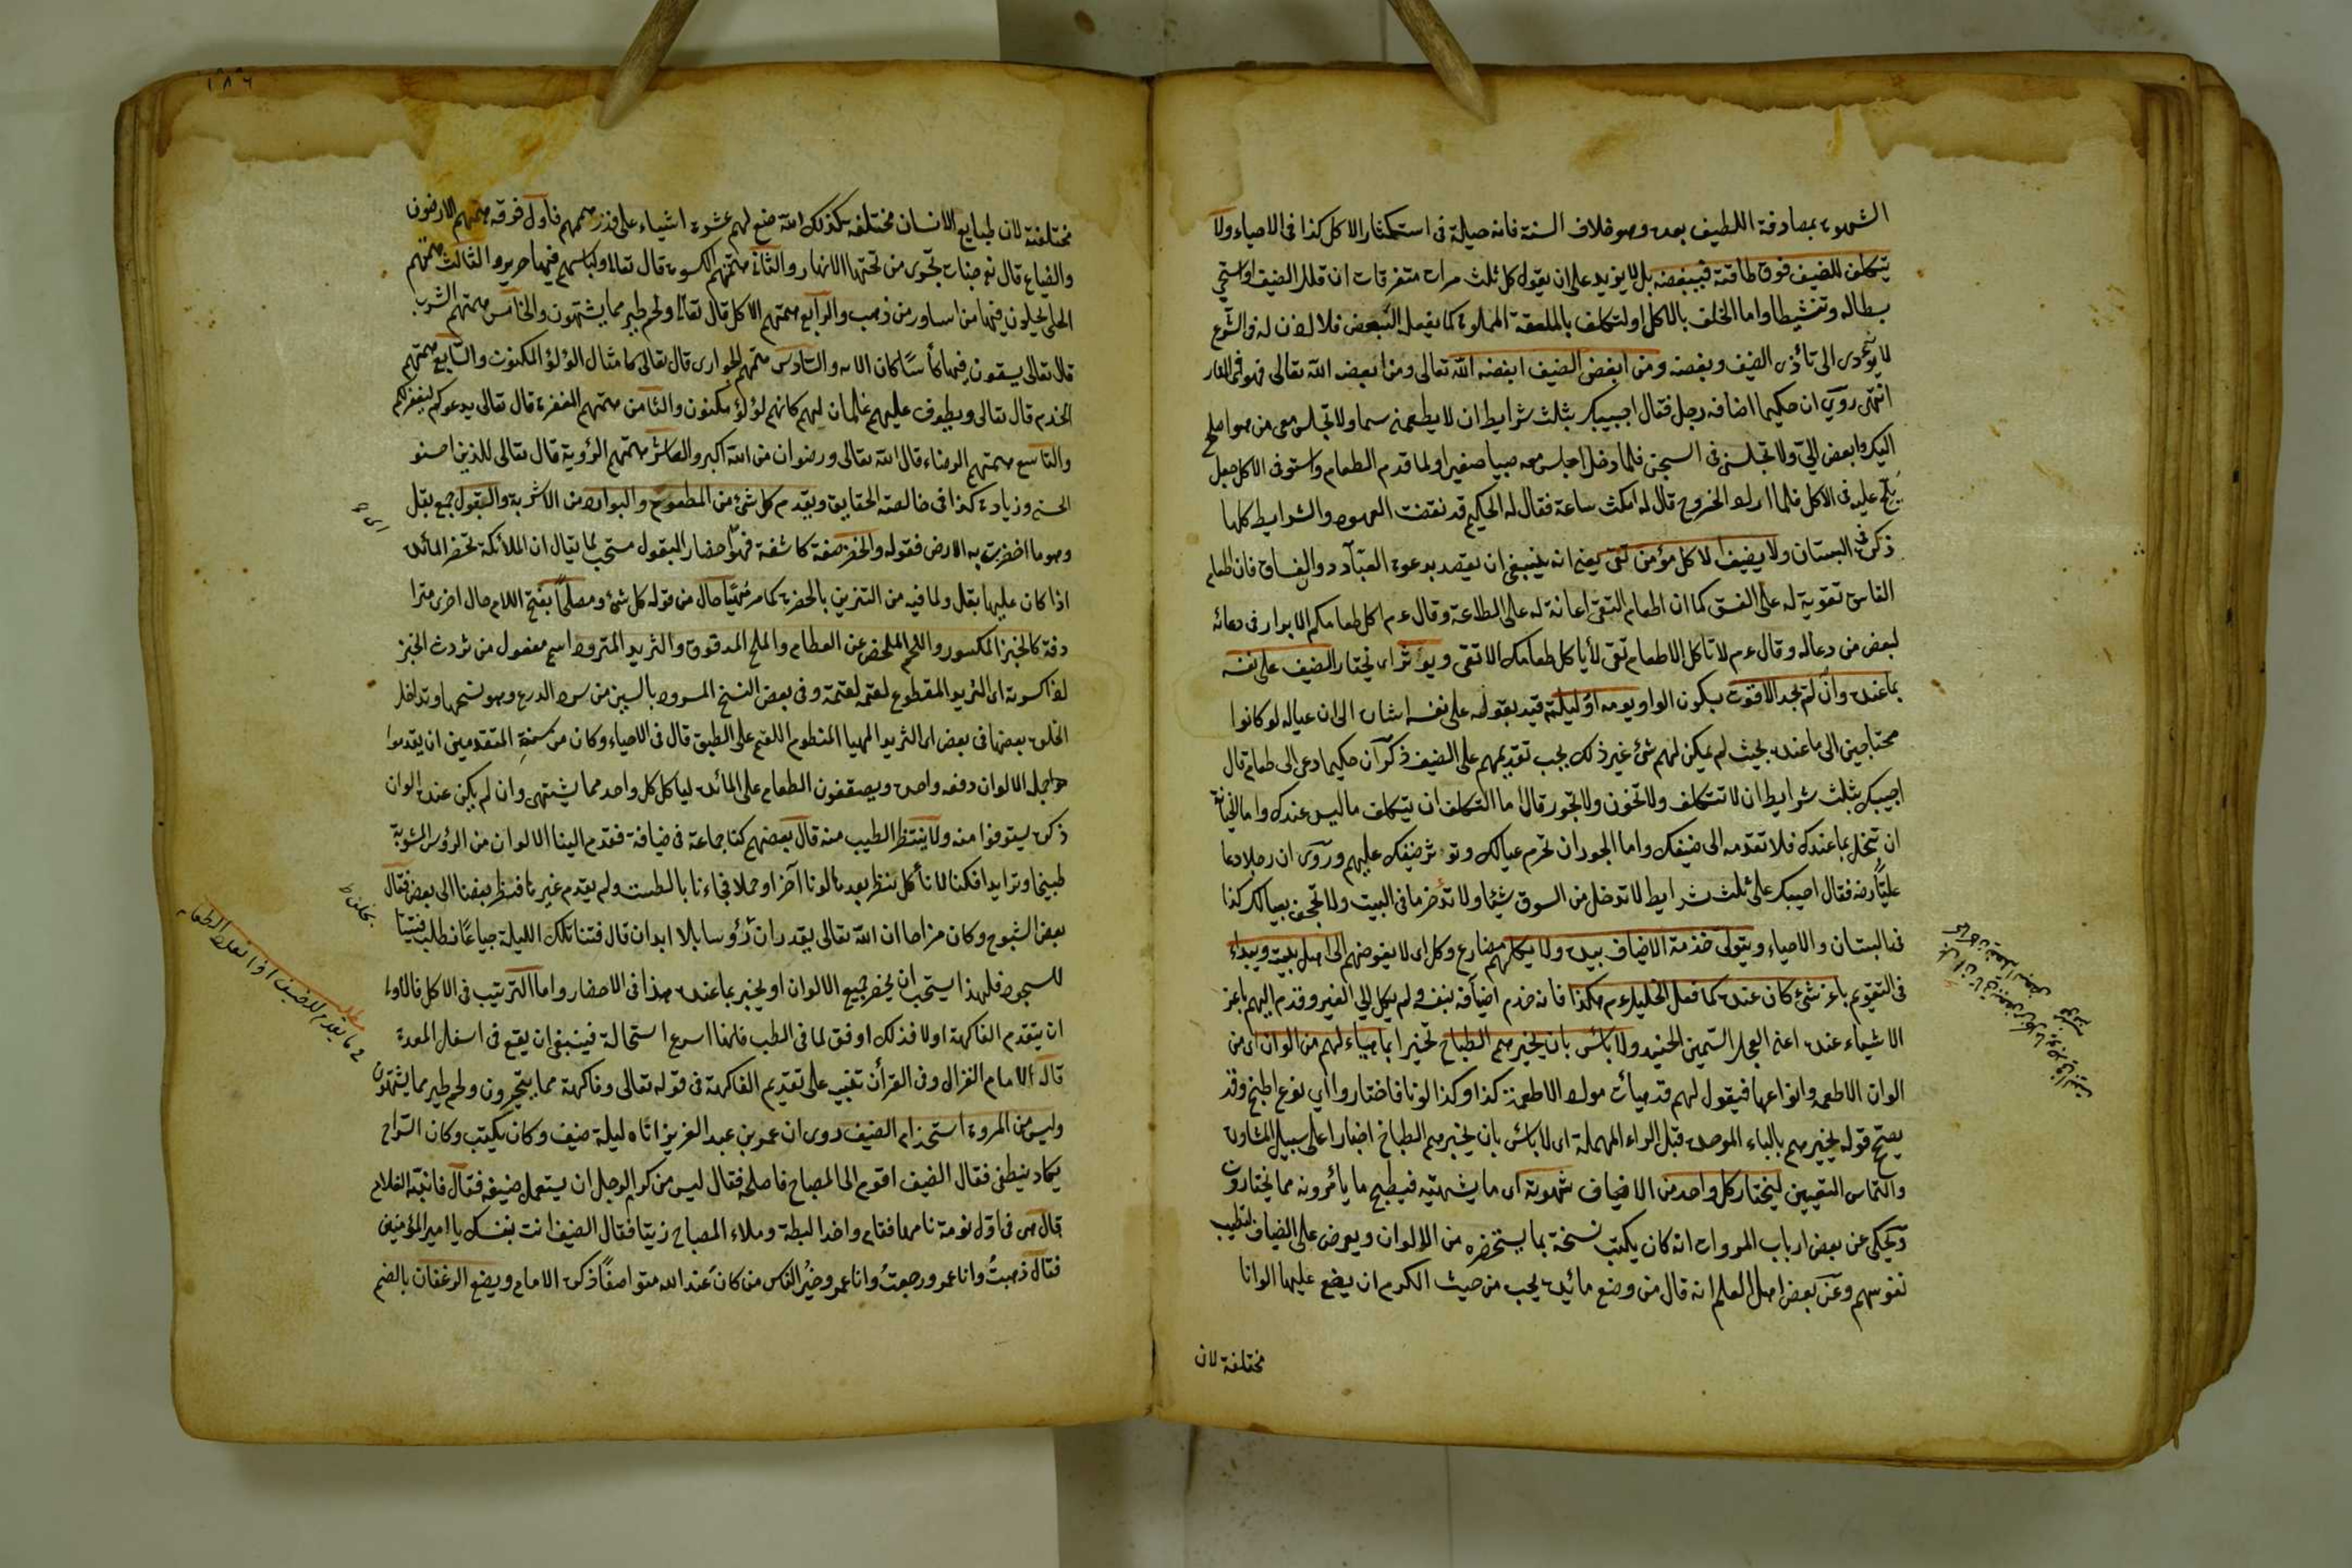 الشهوة بمصادفة اللطيف بعده وهو خلاف السنة فانه حيلة في استكثار الاكل كذا في الاحياء ولا
يتكلف للضيف فوق طاقته فيبغضه بل لا يزيد على ان يقول كل ثلث مرات متفرقات ان قلل الضيف
بطاله وتنشيطا واما الحلف بالاكل او لتكلف بالملعقة المملوة كما يفعل البعض فلا اذن له في الشرع
لا يؤدى الى تأذى الضيف وبغضه ومن ابغض الضيف ابغضه الله تعالى ومن ابغضه الله تعالى فهو في النار
انتهى روى ان حكيما اضافه رجل فقال اجيبك بثلث شرايط ان لا يطعمنى سما ولا تجلس معى من هو احب
اليك وابغض الىّ ولا تجلسنى فى السجن فلما دخل اجلس معه صبيا صغيرا ولما قدم الطعام واستوفى الاكل جعل
يلح عليه فى الاكل فلما اراد الخروج قال له امكث ساعة فقال له الحكيم قد نقضت العهود والشرايط كلها
ذكره فى البستان ولا يضيف الا كل مؤمن تقى يعنى انه ينبغى ان يقصد بدعوته العبّاد دون الفساق فان طعام
الفاسق تقوية له على الفسق كما ان اطعام التقى اعانة له على الطاعة وقال عم اكل طعامكم الابرار فى دعائه
لبعض من دعا له وقال عم لا تأكل الا طعام تقى لا يأكل طعامك الا تقى ويؤثر اى يختار الضيف على نفسه
بما عنده وان لم يجد الا قوت بسكون الواو يومه او ليلته قيد بقوله على نفسه اشارة الى ان عياله لو كانوا
محتاجين الى ما عنده بحيث لم يمكن لهم شئ غير ذلك يجب تقديمهم على الضيف ذكر ان حكيما دعى الى طعام قال
اجيبك بثلث شرايط ان لا تتكلف ولا تخون ولا تجور قال اما التكلف ان تتكلف ما ليس عندك واما الخيانة
ان تبخل بما عندك فلا تقدمه الى ضيفك واما الجور ان تحرم عيالك وتؤثر ضيفك عليهم وروى ان رجلا دعا
عليّا رضه فقال اجيبك على ثلث شرايط لا تدخل من السوق شيئا ولا تدّخر ما فى البيت ولا تجحف بعيالك كذا
فى البستان والاحياء ويتولى خدمة الاضياف بيده ولا يكلهم مضارع وكل اى لا يفوضهم الى اهل بيته ويبداء
فى التقويم باعز شئ كان عنده كما فعل الخليل عم هكذا فانه خدم اضيافه بنفسه ولم يكل الى الغير وقدم اليهم باعز
الاشياء عنده اعنى العجل السمين الحنيذ ولا بأس بان يخبرهم الطباخ تخيرا بما هياء لهم من الوان اى من
الوان الاطعمة وانواعها فيقول لهم قد هيأت مولاه الاطعمة كذا وكذا لونا فاختاروا اي نوع اطبخ وقد
يصح قوله يخبرهم بالباء الموحدة قبل الراء المهملة اى لا بأس بان يخبرهم الطباخ اخبارا على سبيل المشاورة
والتماس التعيين ليختار كل واحد من الاضياف شهوته اى ما يشتهيه فيطبخ ما يأمرونه مما يختارون
ويحكى عن بعض ارباب المروات انه كان يكتب نسخة بما يستحضره من الالوان ويعرض على الضياف لتطيب
نفوسهم وعن بعض اهل العلم انه قال من وضع مائدة يجب من حيث الكرم ان يضع عليها الوانا
مختلفة لان
مختلفة لان طبايع الانسان مختلفة كذلك الله صنع لهم عشرة اشياء على قدر هممهم فاول فرقة همتهم الارضون
والضياع قال تع جنات تجرى من تحتها الانهار والثانى همتهم الكسوة قال تعالى ولباسهم فيها حرير والثالث همتهم
الحلى يحلون فيها من اساور من ذهب والرابع همتهم الاكل قال تعالى ولحم طير مما يشتهون والخامس همتهم الشرب
قال تعالى يسقون فيها كأسا كان الاية والسادس همتهم الجوارى قال تعالى كامثال اللؤلؤ المكنون والسابع همتهم
الخدم قال تعالى ويطوف عليهم غلمان لهم كانهم لؤلؤ مكنون والثامن همتهم المغفرة قال تعالى يدعوكم ليغفر لكم
والتاسع همتهم الرضاء قال الله تعالى ورضوان من الله اكبر والعاشر همتهم الرؤية قال تعالى للذين احسنو
الحسنى وزيادة كذا فى خالصة الحقايق ويقدم كل شئ من المطعوم والبوارد من الاشربة والبقول جمع بقل
وهو ما اخضرت به الارض فقوله والخضر صفة كاشفة فهوّ احضار البقول مستحب لما يقال ان الملائكة تحضر المائدة
اذا كان عليها بقل ولما فيه من التزين بالخضرة كما مر مُهيّأ حال من قوله كل شئ ومصلحاً بفتح اللام حال اخرى مترا
دفة كالخبز المكسور واللحم الملخص عن العظام والملح المدقوق والثريد المثرود اسم مفعول من ثردت الخبز
اذا كسرته اى الثريد المقطوع لقمة لقمة وفى بعض النسخ المسرود بالسين من سرد الدرع وهو نسجها وتداخل
الحلق بعضها فى بعض اى الثريد المهيا المنظوم اللقم على الطبق قال فى الاحياء وكان من سنة المتقدمين ان يقدموا
جملة الالوان دفعة واحدة ويصففون الطعام على المائدة ليأكل كل واحد مما يشتهى وان لم يكن عنده الوان
ذكره ليستوفوا منه ولا ينتظر الطيب منه قال بعضهم كنا جماعة فى ضيافة فقدم الينا الالوان من الرؤس المشوية
طبيخا وقدايدا فكنا لا نأكل ننتظر بعدها لونا آخر او حملا فجاءنا بالطست ولم يقدم غيرها فنظر بعضنا الى بعض فقال
بعض الشيوخ وكان مزاحا ان الله تعالى يقدر ان يخلق رؤسا بلا ابدان قال فبتنا تلك الليلة جياعا نطلب فتيتا
للسحور فلهذا يستحب ان يحضر جميع الالوان او يخبر بما عنده هذا فى الاحضار واما الترتيب فى الاكل فالاولى
ان يتقدم الفاكهة اولا فذلك اوفق لما فى الطب فانها اسرع استحالة فينبغى ان يقع فى اسفل المعدة
قال الامام الغزالى وفى القرأن تنبيه على تقديم الفاكهة فى قوله تعالى وفاكهة مما يتخيرون ولحم طير مما يشتهون
وليس من المروة استخدام الضيف روى ان عمر بن عبد العزيز اتاه ليلة ضيف وكان يكتب وكان السراج
يكاد ينطفى فقال الضيف اقوم الى المصباح فاصلحه فقال ليس من كرم الرجل ان يستعمل ضيفه فقال فانبّه الغلام
قال هى فى اول نومة نامها فقام واخذ البطة وملاء المصباح زيتا فقال الضيف انت بنفسك يا امير المؤمنين
فقال ذهبتُ وانا عمر ورجعتُ وانا عمر وخيرُ الناس من كان عند الله متواضعاً ذكره الامام ويضع الرغفان بالضم
مطلب
ما يقدم للضيف اذا نقل الطعام